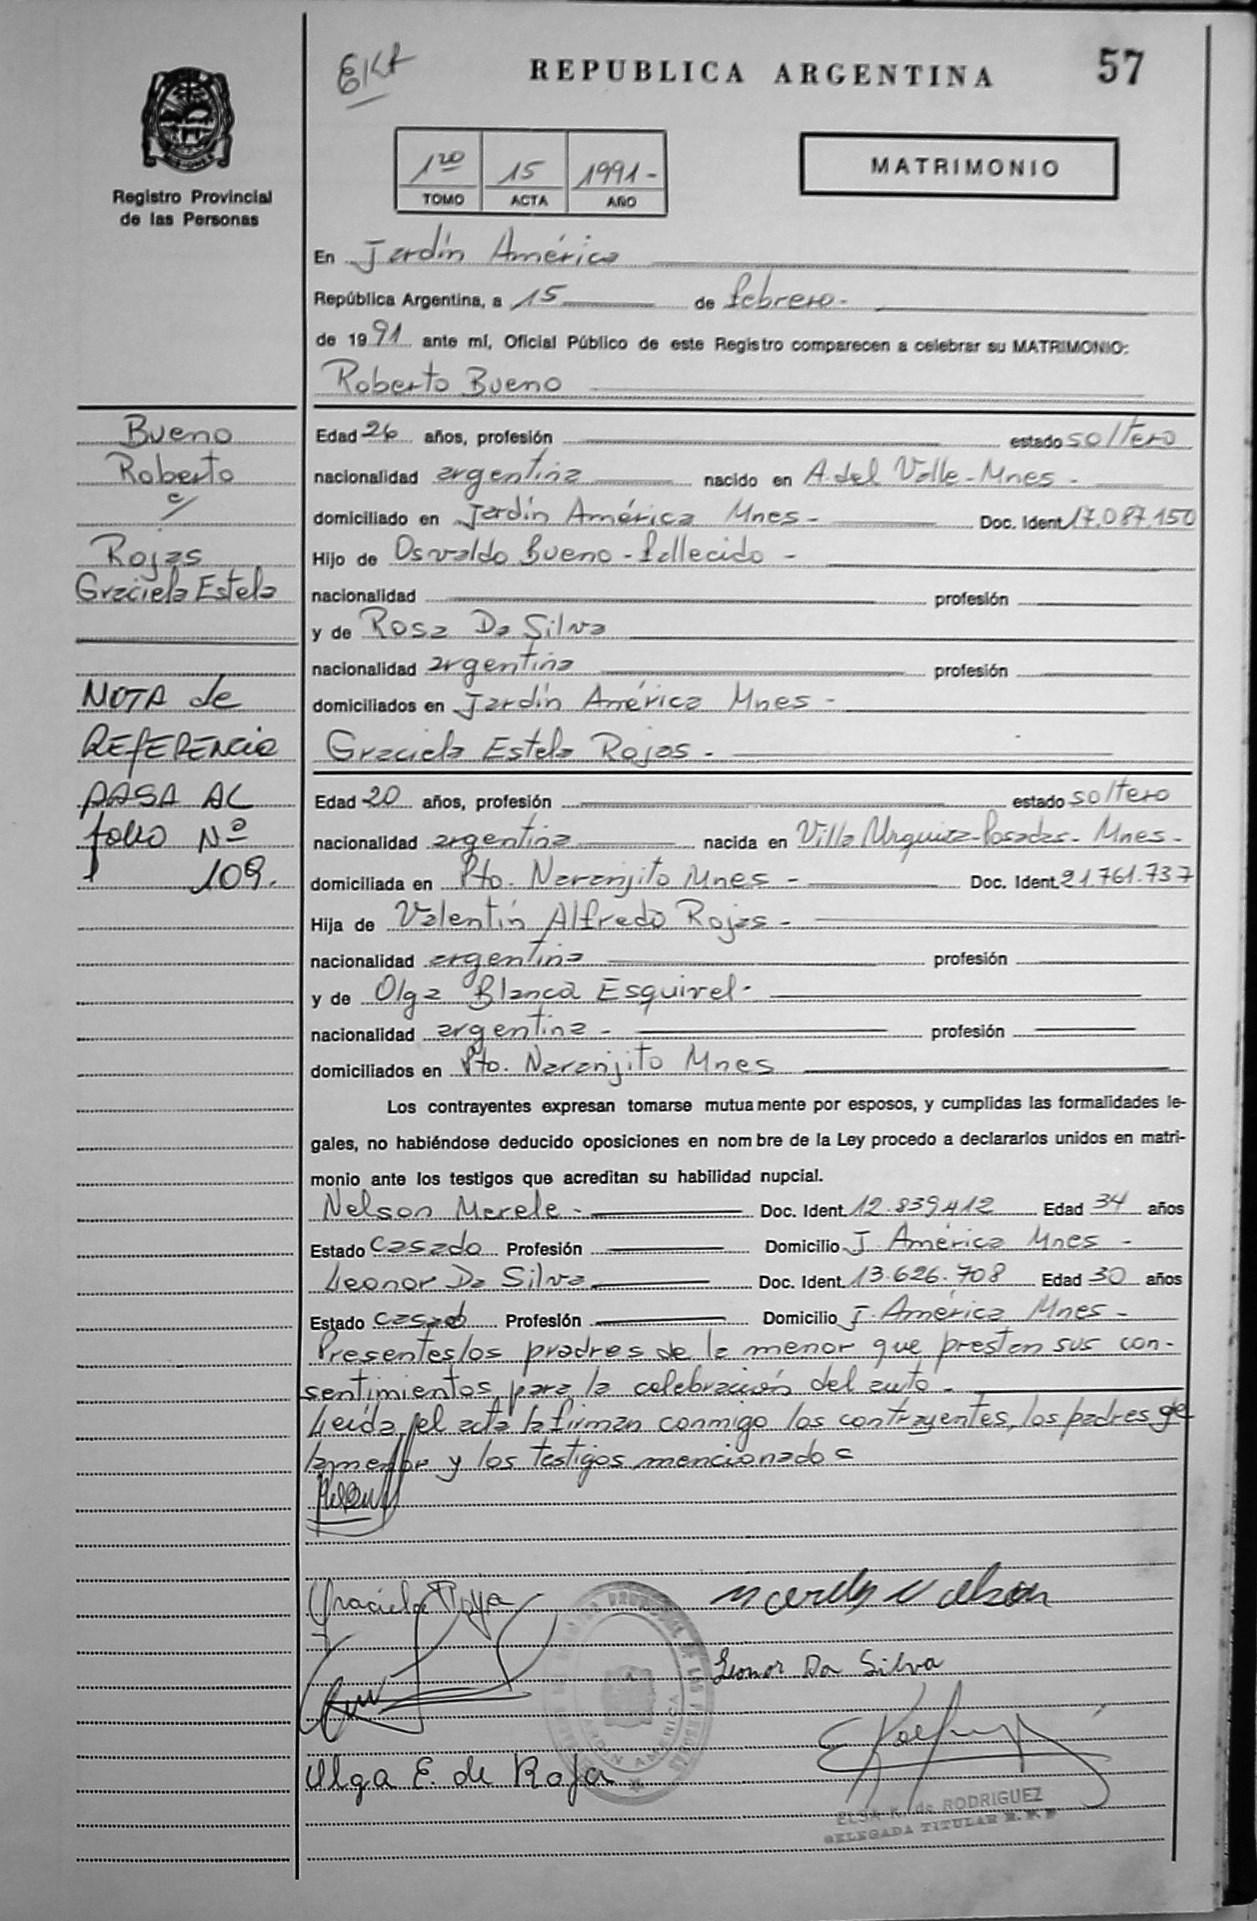 EKA
REPUBLICA ARGENTINA
57
Registro Provincial
de las Personas
1ro 15 1991-
TOMO ACTA AÑO
MATRIMONIO
En Jardín América
República Argentina, a 15 de febrero-
de 1991 ante mí, Oficial Público de este Registro comparecen a celebrar su MATRIMONIO:
Roberto Bueno
Bueno
Roberto
c/
Rojas
Graciela Estela
NOTA de
REFERENCIA
PASA AL
folio Nº
109.
Edad 26 años, profesión estado soltero
nacionalidad argentina nacido en A. del Valle-Mnes-
domiciliado en Jardín América Mnes- Doc. Ident 17.087.150
Hijo de Osvaldo Bueno-fallecido-
nacionalidad profesión
y de Rosa Da Silva
nacionalidad argentina profesión
domiciliados en Jardín América Mnes-
Graciela Estela Rojas.-
Edad 20 años, profesión estado soltero
nacionalidad argentina nacida en Villa Urquiza-Posadas-Mnes-
domiciliada en Pto. Naranjito Mnes- Doc. Ident. 21.761.737
Hija de Valentín Alfredo Rojas-
nacionalidad argentina profesión
y de Olga Blanca Esquivel-
nacionalidad argentina- profesión
domiciliados en Pto. Naranjito Mnes
Los contrayentes expresan tomarse mutuamente por esposos, y cumplidas las formalidades le-
gales, no habiéndose deducido oposiciones en nombre de la Ley procedo a declararlos unidos en matri-
monio ante los testigos que acreditan su habilidad nupcial.
Nelson Merele- Doc. Ident. 12.839.412 Edad 34 años
Estado Casado Profesión Domicilio J. América Mnes-
Leonor Da Silva Doc. Ident. 13.626.708 Edad 30 años
Estado casado Profesión Domicilio J. América Mnes-
Presentes los pradres de la menor que prestan sus con-
sentimientos para la celebración del auto-
Leída el acta la firman conmigo los contrayentes, los padres de
la menor y los testigos mencionados
Graciela Roja
Leonor Da Silva
Olga E. de Roja
JARDIN AMERICA
ELSA K. de RODRIGUEZ
DELEGADA TITULAR R.P.P